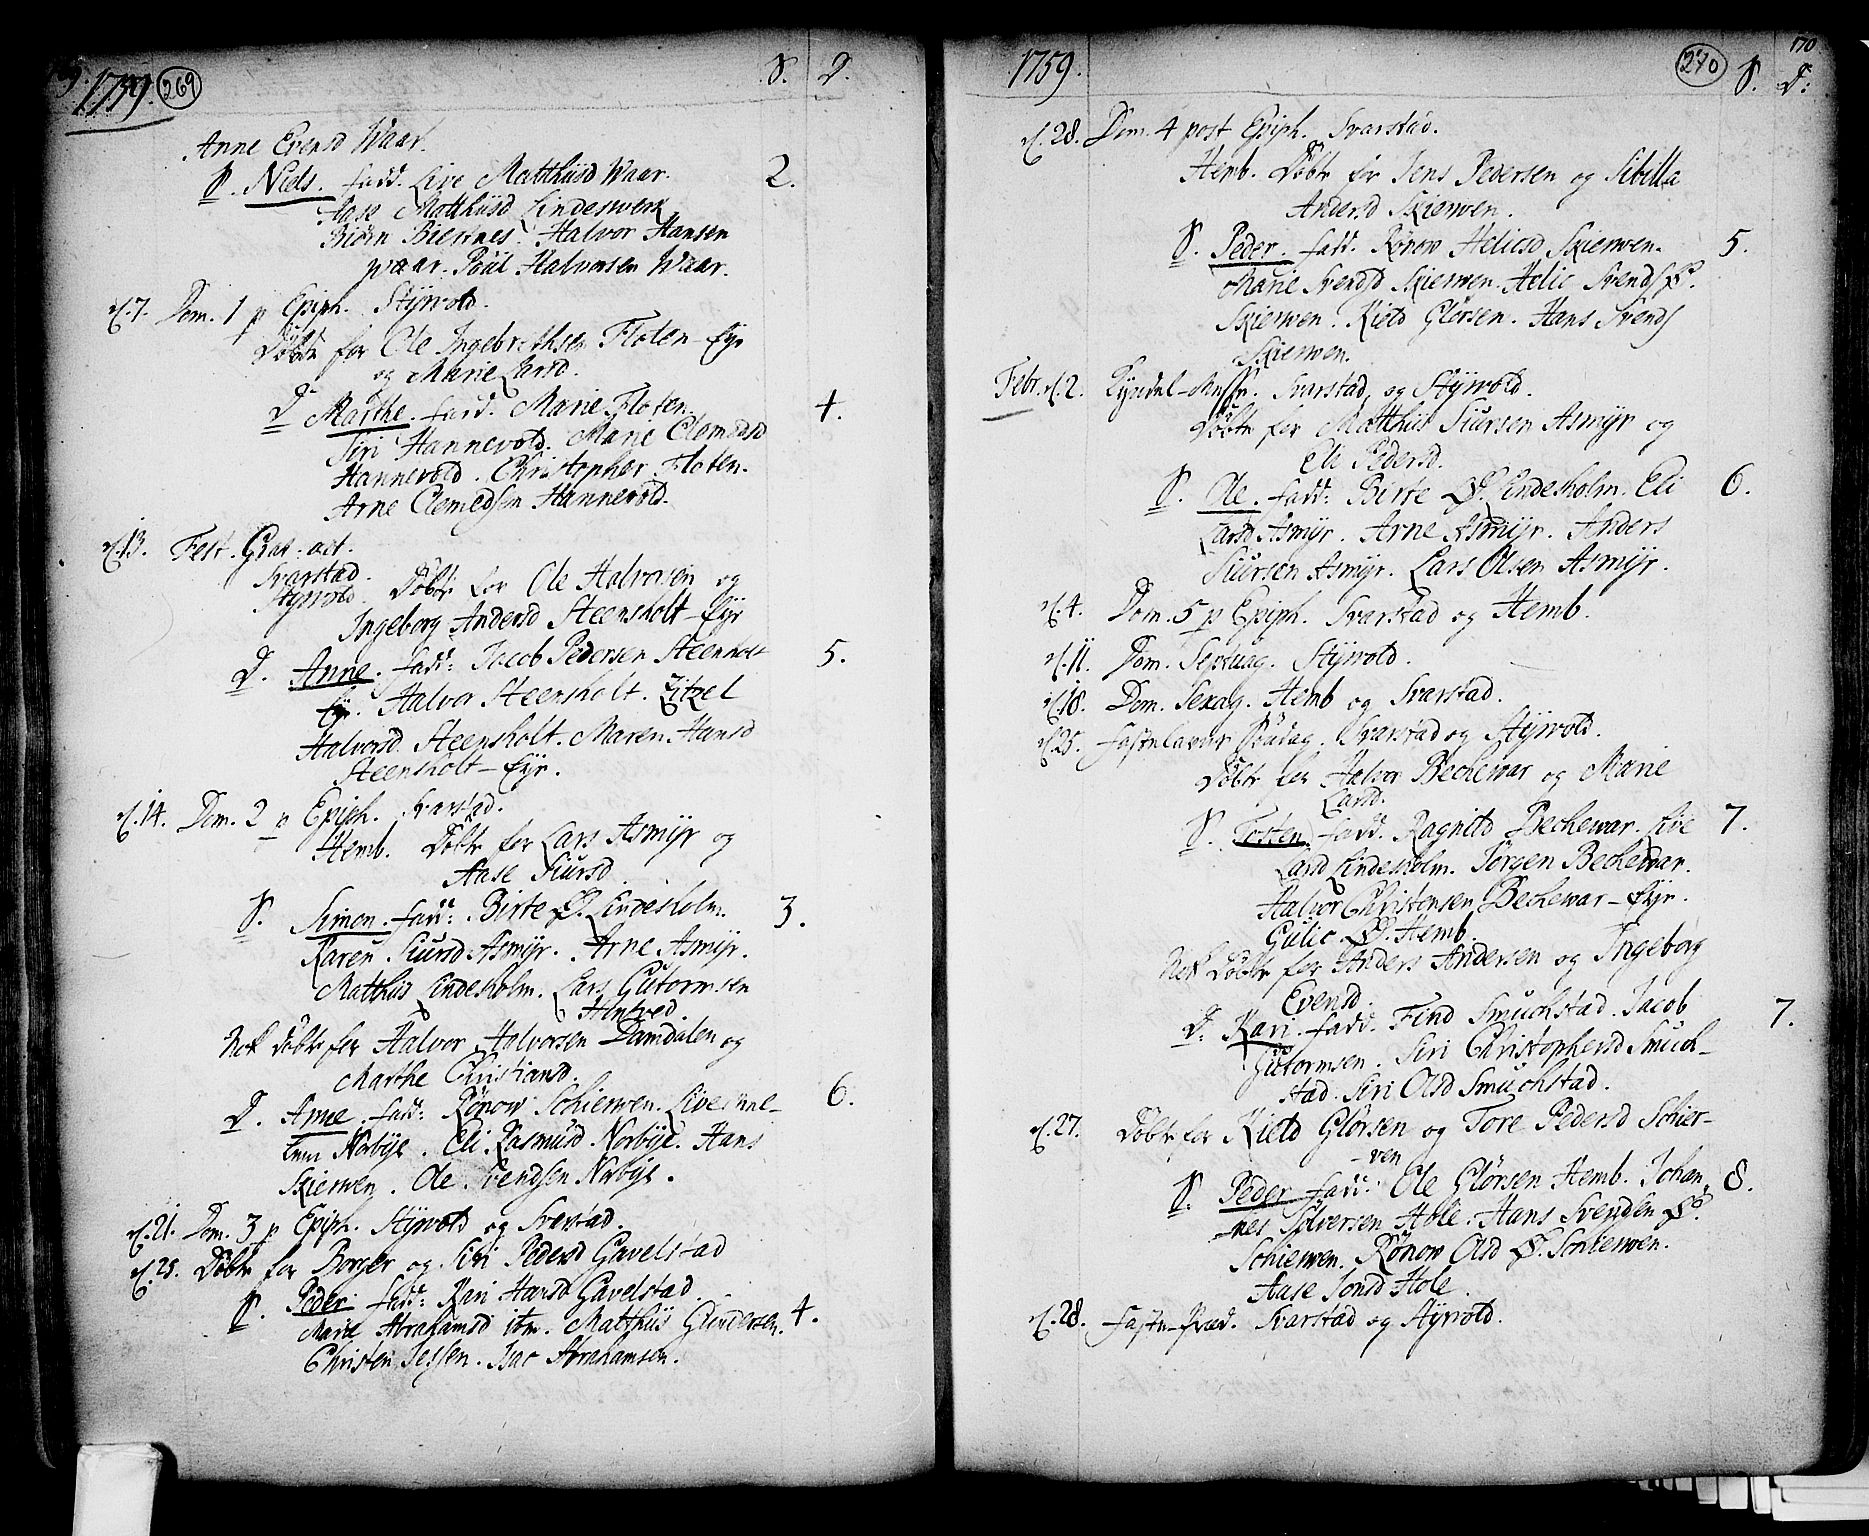 1759. 269 S. D.
Anne Evensd Waar.
S. Niels. fadd. Live Matthiisd Waar. 2.
Aase Matthiisd Lindeswerk
Biørn Biernes. Halvor Hansen
Waar. Poul Halvorsen Waar.
d. 7. Dom. 1 p Epiph. Styrvold.
Døbt for Ole Ingebrethsen Floten-Eye
og Marie Larsd.
D Marthe. fadd. Marie Floten. 4.
Siri Hannevold. Marie Clemedsd
Hannevold. Christopher Floten.
Arne Clemedsen Hannevold.
d. 13. Fest. Grat. act.
Svarstad.
Styrvold. Døbt for Ole Halvorsen og
Ingeborg Andersd Steensholt-Eye
D. Anne. fadd: Jacob Pedersen Steenholt 5.
Eye. Halvor Steensholt. Zitzel
Halvorsd Steensholt. Maren Hansd
Steensholt-Eye.
d. 14. Dom. 2 p Epiph. Svarstad.
Hemb. Døbt for Lars Asmyr og
Aase Siursd
S. Simon. fadd: Birte Ø. Lindesholm. 3.
Karen Siursd Asmyr. Arne Asmyr.
Matthiis Lindesholm. Lars Gutormsen
Hontved.
Nok døbt for Halvor Halvorsen Damdalen og
Marthe Christiansd.
D. Anne. fadd: Rønow Schierwen. Live 6.
Norbye. Eli Rasmusd Norbye. Hans
Skierwen. Ole Svendsen Norbye.
d. 21. Dom. 3 p Epiph. Styrvold og Svarstad.
d. 25. Døbt for Borger og Siri Pedersd Gavelstad
S. Peder. fadd: Kari Hansd Gavelstad.
Marie Abrahamsd ibm. Matthiis Gundersen. 4.
Christen Jessen. Isac Abrahamsen.
1759. 270 170 S. D:
d. 28. Dom. 4 post Epiph. Svarstad.
Hemb. Døbt for Jens Pedersen og Sibilla
Andersd Skierwen.
S. Peder. fadd. Rønow Heliesd Skierwen. 5.
Marie Svendsd Skierwen. Helie Svends Ø.
Skierwen. Kield Glørsen. Hans Svends
Skierwen.
Febr. d. 2. Kyndel-Messe. Svarstad, og Styrvold.
Døbt for Matthiis Siursen Asmyr og
Eli Pedersd.
S. Ole. fadd: Birte Ø. Lindesholm. Eli 6.
Larsd Asmyr. Arne Asmyr. Anders
Siursen Asmyr. Lars Olsen Asmyr.
d. 4. Dom. 5 p Epiph. Svarstad og Hemb.
d. 11. Dom. Septuag. Styrvold.
d. 18. Dom. Sexag. Hemb og Svarstad.
d. 25. Fastelavns Søndag. Svarstad og Styrvold.
Døbt for Halvor Bechewar og Marie
Larsd.
S. Tosten. fadd. Ragnild Bechewar. Live 7.
Larsd Lindesholm. Jørgen Bechewar.
Halvor Christensen Bechewar-Eye.
Gulic Ø. Hemb.
Nok Døbt for Anders Andersen og Ingeborg
Evensd.
D: Kari. fadd. Find Smuchstad. Jacob 7.
Gutormsen. Siri Christophersd Smuch-
stad. Siri Olsd Smuchstad.
d. 27. Døbt for Kield Glørsen og Tore Pedersd Schier-
-ven
S. Peder. fadd: Ole Glørsen Hemb. Johan- 8.
-nes Sølversen Hole. Hans Svendsen Ø.
Schierwen. Rønow Olsd Ø. Schierwen.
Aase Jonsd Hole.
d. 28. Faste-Præd. Svarstad og Styrvold.